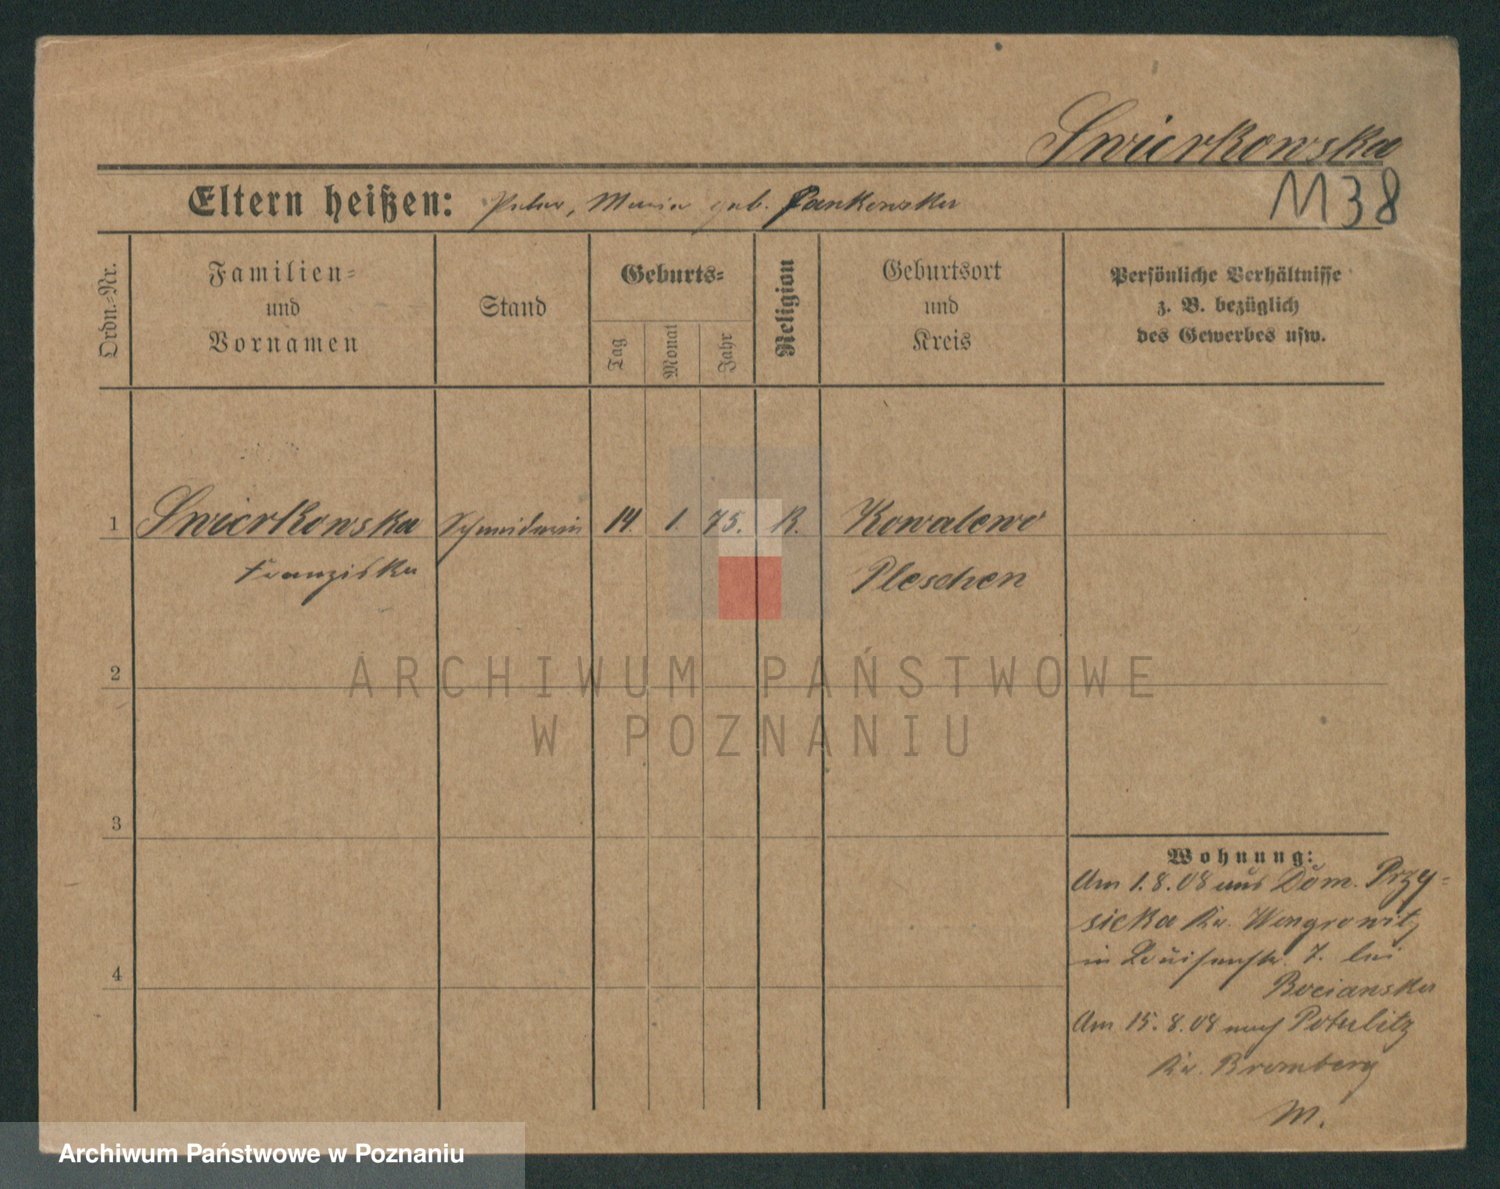 Swierkowska
1138
Eltern heißen: Peter, Maria geb. Jankowska
Ordn.=Nr.
Familien=
und
Vornamen
Stand
Geburts=
Tag
Monat
Jahr
Religion
Geburtsort
und
Kreis
Persönliche Verhältnisse
z. B. bezüglich
des Gewerbes usw.
1 Swierkowska Schneiderin 14. 1. 75. K. Kowalewo
Franziska Pleschen
2
ARCHIWUM PAŃSTWOWE
W POZNANIU
3
Wohnung:
Am 1.8.08 aus Dom. Przy=
sieka Kr. Wongrowitz
in Louisenstr. 7. bei
Bocianska
4
Am 15.8.08 nach Potulitz
Kr. Bromberg
M.
Archiwum Państwowe w Poznaniu